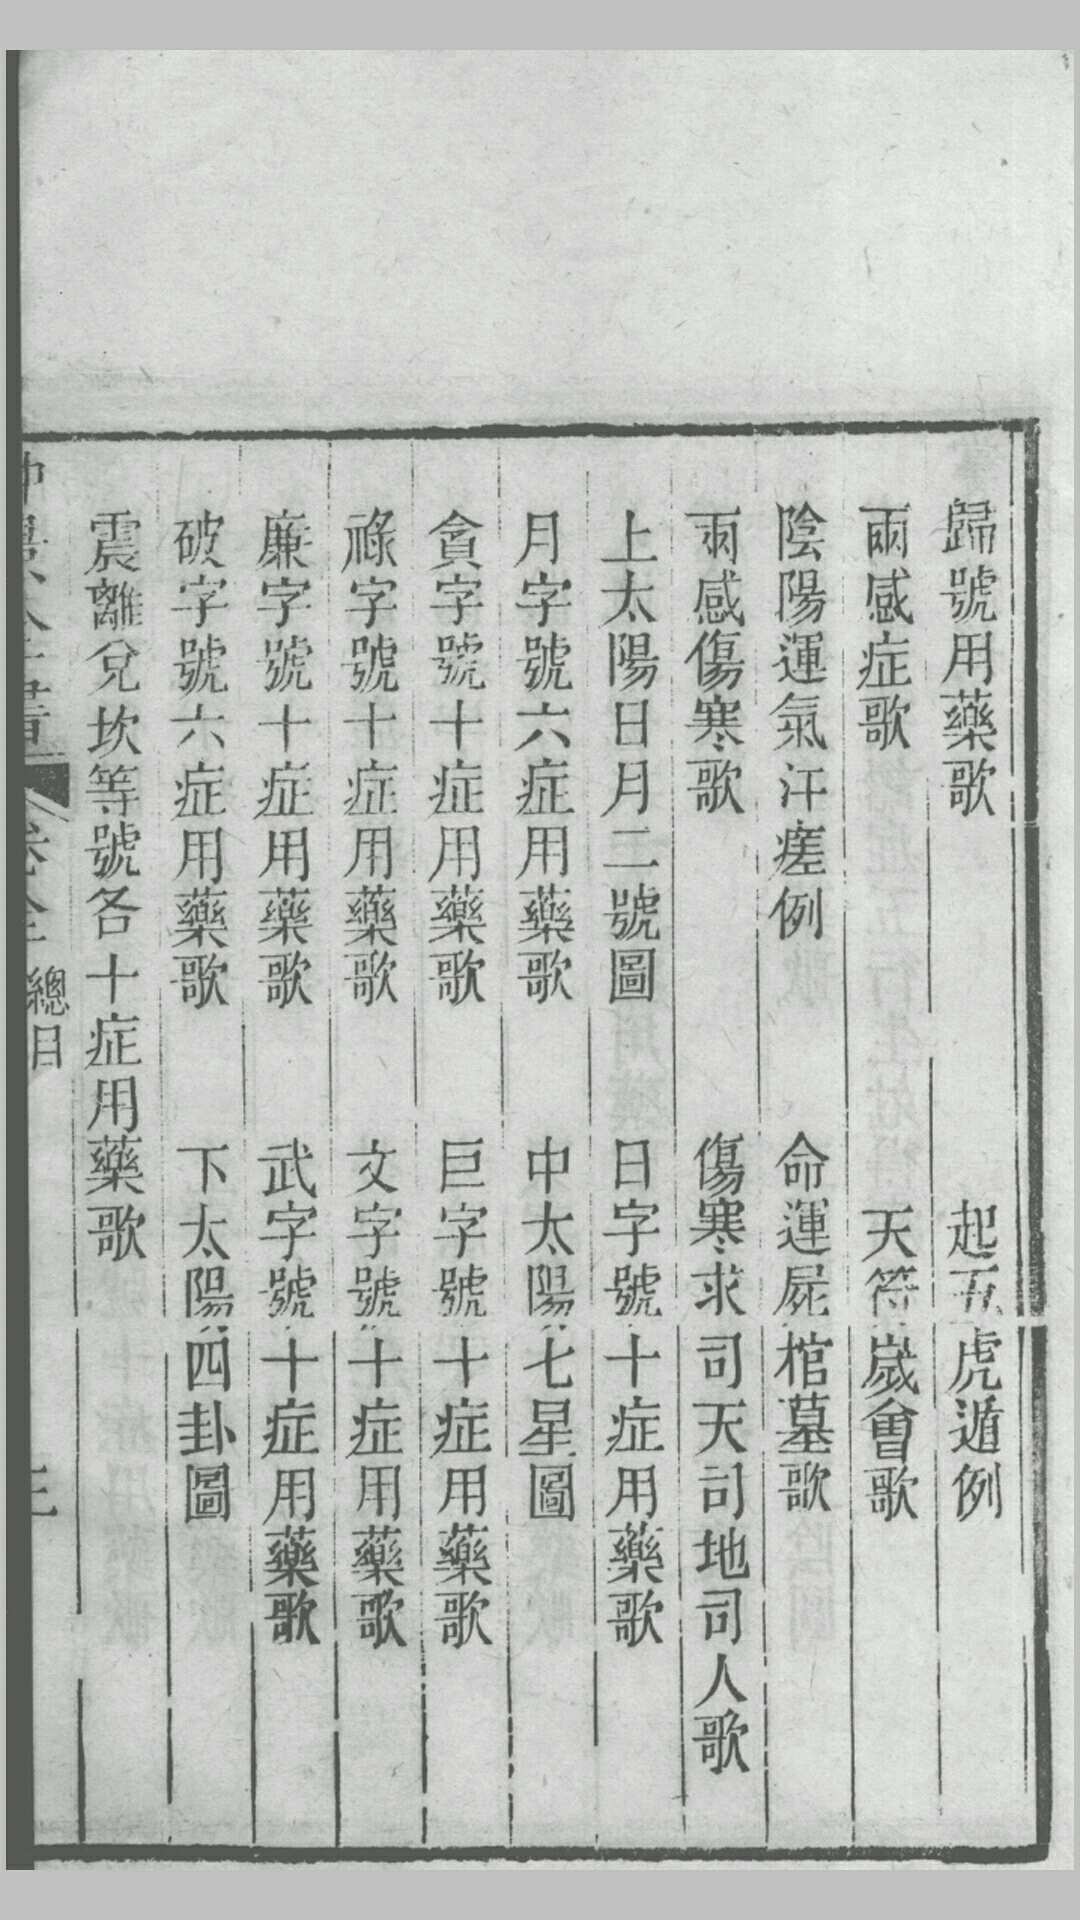 歸號用藥歌　起五虎遁例
兩感症歌　天符歲會歌
陰陽運氣汗瘥例　命運屍棺墓歌
兩感傷寒歌　傷寒求司天司地司人歌
上太陽日月二號圖　日字號十症用藥歌
月字號六症用藥歌　中太陽七星圖
貪字號十症用藥歌　巨字號十症用藥歌
祿字號十症用藥歌　文字號十症用藥歌
廉字號十症用藥歌　武字號十症用藥歌
破字號六症用藥歌　下太陽四卦圖
震離兌坎等號各十症用藥歌
總目